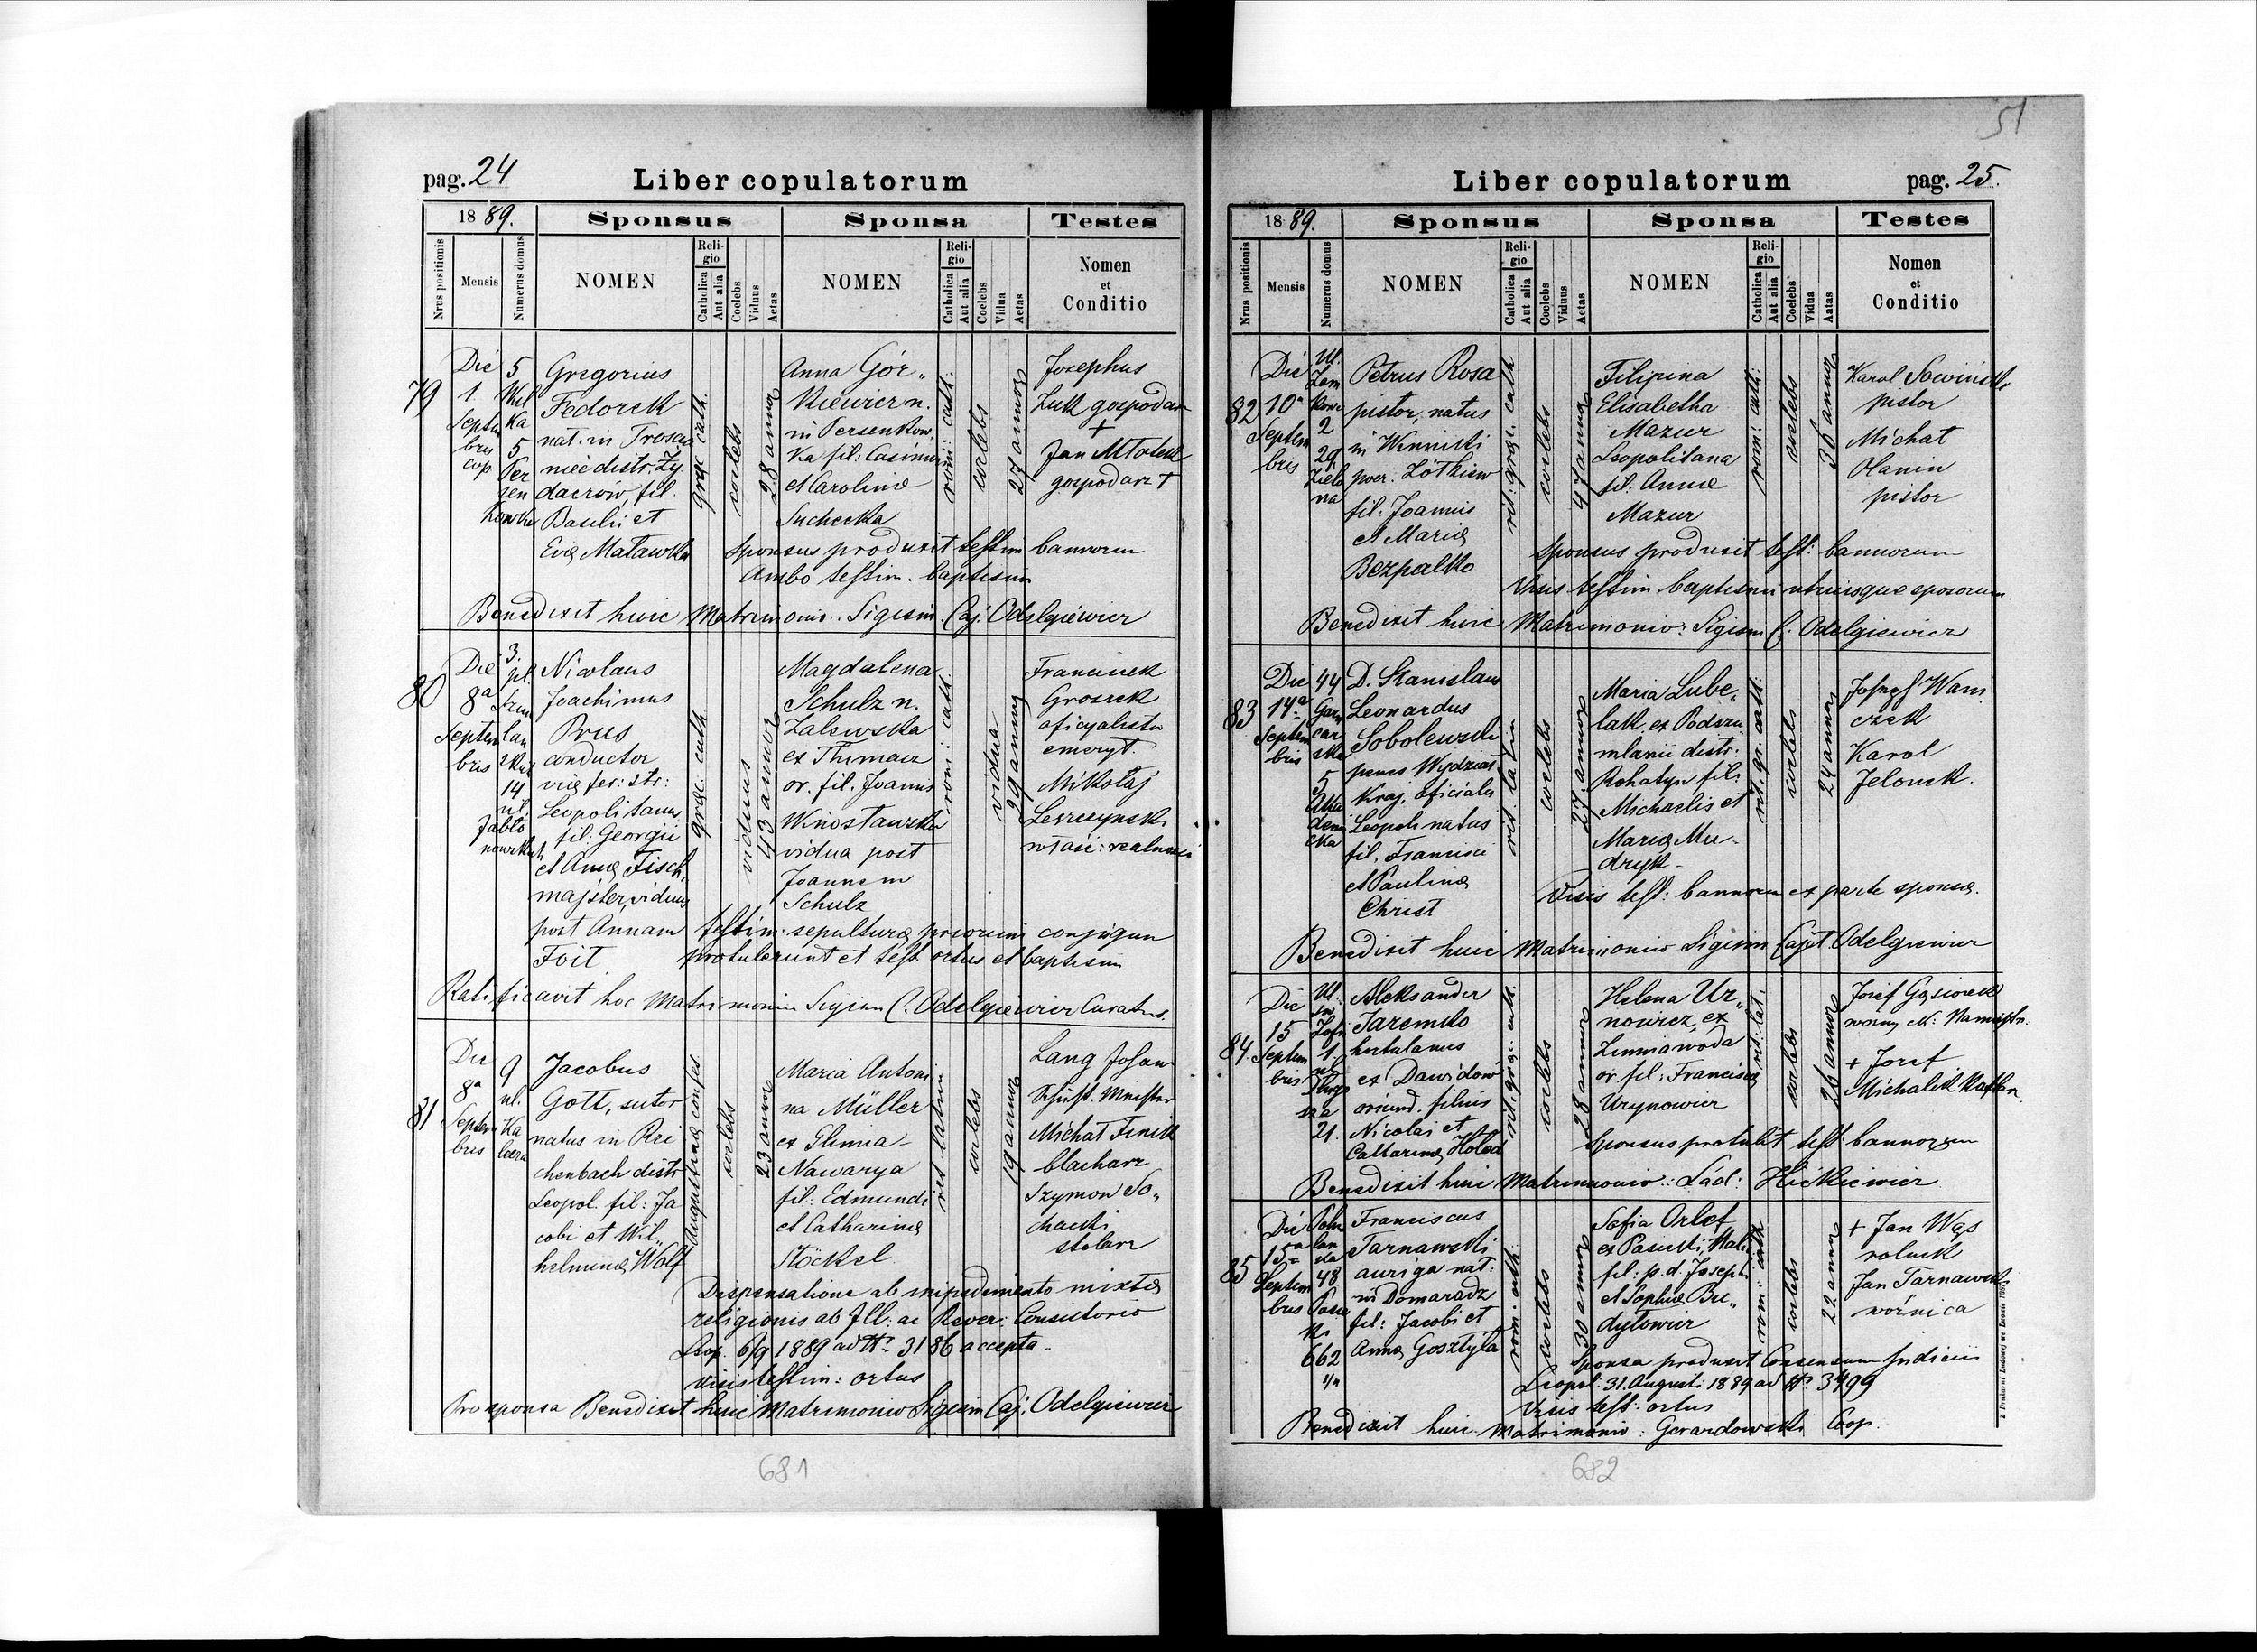 51
pag. 24
Liber copulatorum
1889.
Sponsus
Sponsa
Testes
Nrus positionis
Mensis
Numerus domus
NOMEN
Religio
Catholica
Aut alia
Coelebs
Viduus
Aetas
NOMEN
Religio
Catholica
Aut alia
Coelebs
Vidua
Aetas
Nomen
et
Conditio
79
Die
1.
Septem
bris
cop
5
Kul
ka
5
Per
sen
kowka
Gregorius
Fedorek
nat. in Trosca
niec distr. Zy
daczów, fil.
Basilii et
Eva Matawska
græc cath.
coelebs
28 annor
Anna Gór„
kiewicz n.
in Persenkow
ka fil: Casimiri
et Carolinæ
Suchecka
rom: cath:
coelebs
27 annor
Josephus
Zuk gospodarz
+
Jan Młotek
gospodarz +
Sponsus produxit testim bannorum
Ambo testim. baptism
Benedixit huic Matrimonio. Sigism. Caj. Odelgiewicz
80
Die
8a
Septem
bris
3.
pl.
14
ul.
Jabło
nowskich
Nicolaus
Joachimus
Prus
conductor
viæ fer: str:
Leopolitanus,
fil. Georgii
et Annæ Fisch,
majster, viduus
post Annam
Foit
græc: cath
viduus
43 annor
Magdalena
Schulz n.
Zalewska
ex Tłumacz
or. fil. Joannis
vidua post
Joannem
Schulz
rom: cath.
vidua
29 annor
Franciszek
Grosick
oficyalista
emeryt.
Mikołaj
Leszczyńsk
właśc: realności
testim. sepulturæ priorum conjugum
protulerunt et test ortus et baptism
Ratificavit hoc Matrimonium Sigism C. Odelgiewicz Curatus.
81
Die
8a
Septem
bris
9
ul.
Ka
lecza
Jacobus
Gott, sutor
natus in Rei
chenbach distr
Leopol. fil: Ja
cobi et Wil„
helminæ Wolf
Augustinæ confes.
coelebs
23 annor
Maria Antoni
na Müller
ex Glinna
Nawarya
fil: Edmundi
et Catharinæ
Stöckel
rit latin
coelebs
19 annor
Lang Johan
Michał Finik
blacharz
Szymon So„
chacki
stolarz
Dispensatione ab impedimento mixtæ
religionis ab Ill: ac Rever: Consistorio
Leop. 6/9 1889 ad No 3186 accepta.
visis testim: ortus
Pro sponsa Benedixit huic Matrimonio Sigism Caj. Odelgiewicz
681
Liber copulatorum
pag. 25.
1889.
Sponsus
Sponsa
Testes
Nrus positionis
Mensis
Numerus domus
NOMEN
Religio
Catholica
Aut alia
Coelebs
Viduus
Aetas
NOMEN
Religio
Catholica
Aut alia
Coelebs
Vidua
Aatas
Nomen
et
Conditio
82
Die
10a
Septem
bris
Ul.
Zam
kowa
2
29
Zielo
na
Petrus Rosa
pistor, natus
in Winniki
powr. Żółkiew
fil: Joannis
et Mariæ
Bezpalko
rit: græc. cath
coelebs
47 annor
Filipina
Elisabetha
Mazur
Leopolitana
fil: Annæ
Mazur
rom: cath:
coelebs
36 annor
Karol Sowiński
pistor
Michał
Olanin
pistor
Sponsus produxit test: bannorum
Visis testim baptismi utriusque sposorum.
Benedixit huic Matrimonio: Sigism C. Odelgiewicz
83
Die
14a
Septem
bris
44
Garn
car
ska
5
Aka
demi
cka
D. Stanislaus
Leonardus
Sobolewski
penes Wydział
Kraj. oficialis
Leopoli natus
fil. Francisci
et Paulinæ
Christ
rit. latin
coelebs
27 annor
Maria Lube„
lak ex Podszu
mlanii distr:
Rohatyn fil:
Michaelis et
Mariæ Mu-
dryk-
rit. gr. cath:
coelebs
24 annor
Joseph Wan
czek
Karol
Jelonek.
Visis test: bannorum ex parte sponsæ.
Benedixit huic Matrimonio Sigism Cajet Odelgiewicz
84.
Die
15
Septem
bris
Ul.
Sw.
Zofii
1.
ul.
Długo
sza
21.
Aleksander
Jaremko
hortulanus
ex Dawidów
oriund. filius
Nicolai et
Catharinæ Holod
rit. græc. cath.
coelebs
28 annor
Helena Ur„
nowicz, ex
Zimnawoda
or fil: Franciscæ
Urynowicz
rit: lat.
coelebs
26 annor
Josef Gąsiorek
woźny ck: Namiestn:
+ Josef
Michalik
Sponsus protulit test: bannorum
Benedixit huic Matrimonio: Lád: Hickiewicz
85
Die
15a
Septem
bris
48
Pasie
ki
662
1/4
Franciscus
Tarnawski
auriga nat:
in Domaradz
fil: Jacobi et
Annæ Gosztyła
rom: cath
coelebs
30 annor
Sofia Orlef
ex Pasieki,
fil: p. d. Joseph
et Sophiæ Bre„
dytowicz
rom: cath
coelebs
22 annor
+ Jan Wąs
rolnik
Jan Tarnawski
woźnica
Sponsa produxit Consensum Judicii
Leopol: 31. Augusti 1889 ad No 3499
Visis test: ortus
Benedixit huic Matrimonio: Gerardowski Coop.
682